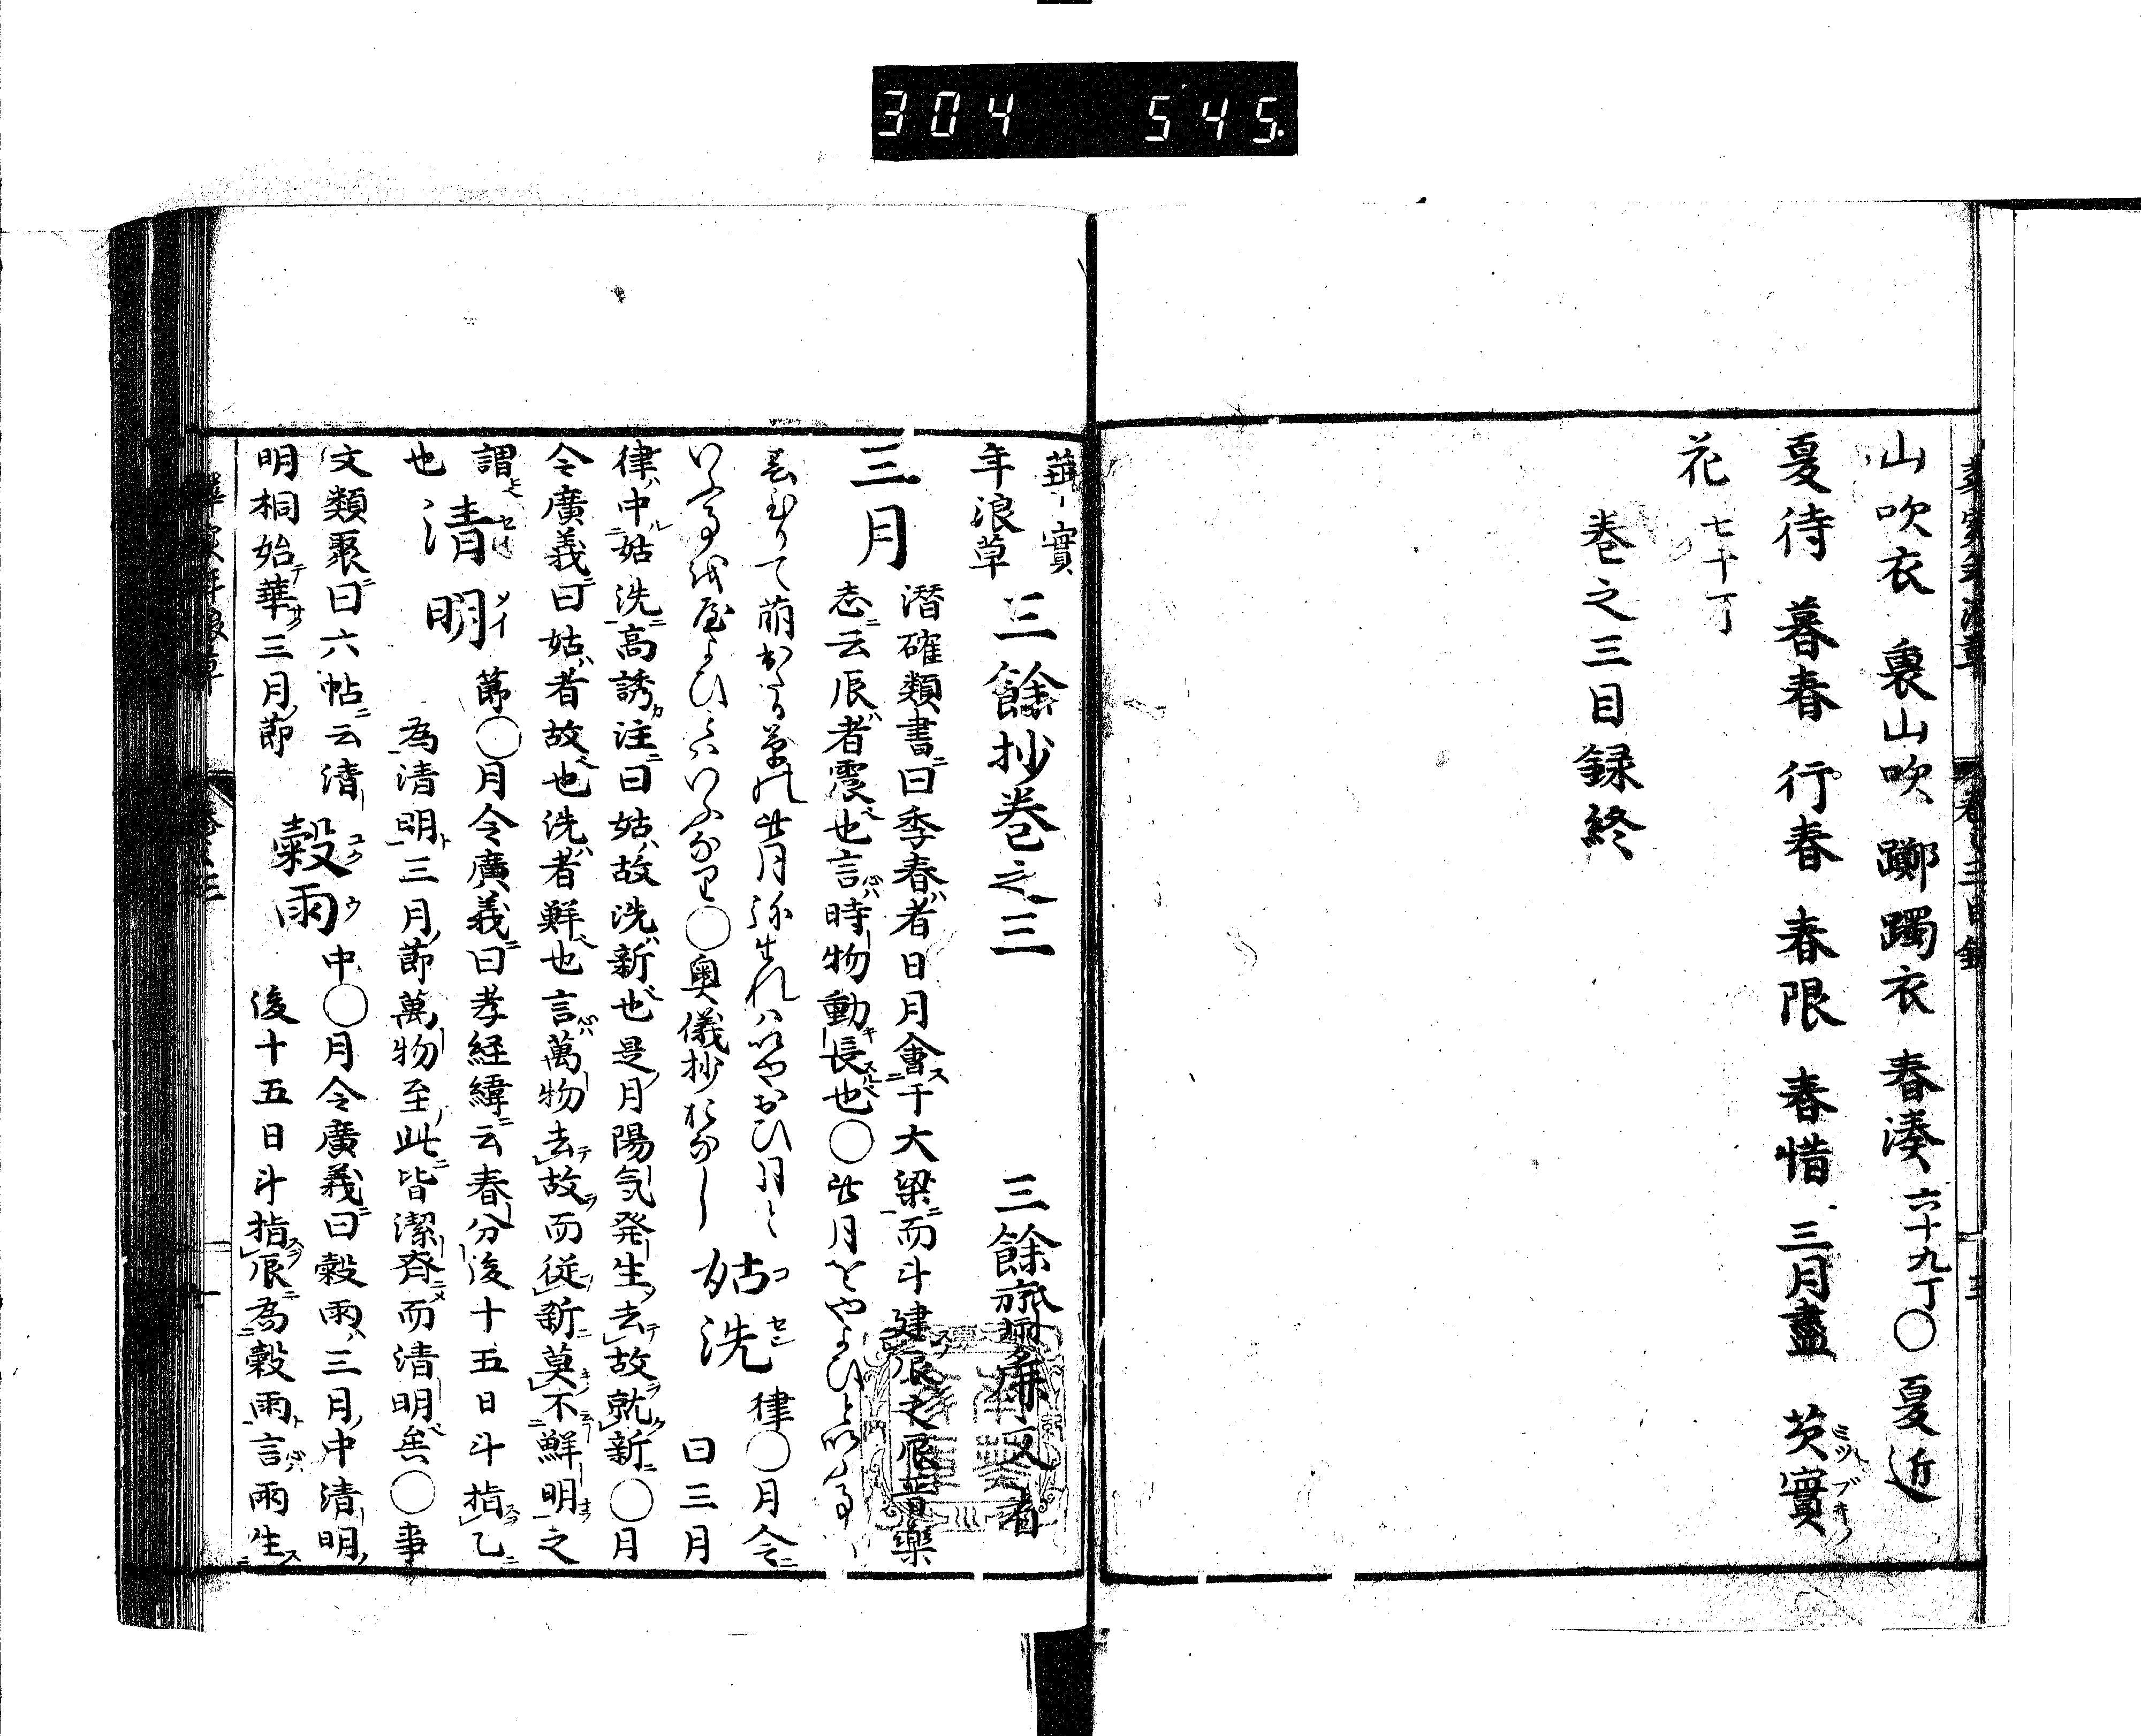 304 545
山吹衣 裏山吹 躑躅衣 春湊 六十九丁〇 夏近
夏待 暮春 行春 春限 春惜 三月盡 茨實
花 七十丁
巻之三目録終
華實
年浪草 三餘抄巻之三 三餘齋
三月 潛確類書曰季春者日月會于大梁而斗建辰之辰晉樂
志云辰者震也言時物動長也〇此月をやよひといふ事
月令
いふ事を 〇奥儀抄 姑洗 律〇月令
曰三月
律中姑洗高誘注曰姑故洗新也是月陽気発生去故就新〇月
令廣義曰姑者故也洗者鮮也言萬物去故而従新莫不鮮明之
謂也 清明 節〇月令廣義曰孝経緯云春分後十五日斗指乙
為清明三月節萬物至此皆潔齊而清明矣〇事
文類聚曰六帖云清明桐始華三月節 穀雨 中〇月令廣義曰穀雨三月中清明
後十五日斗指辰為穀雨言雨生